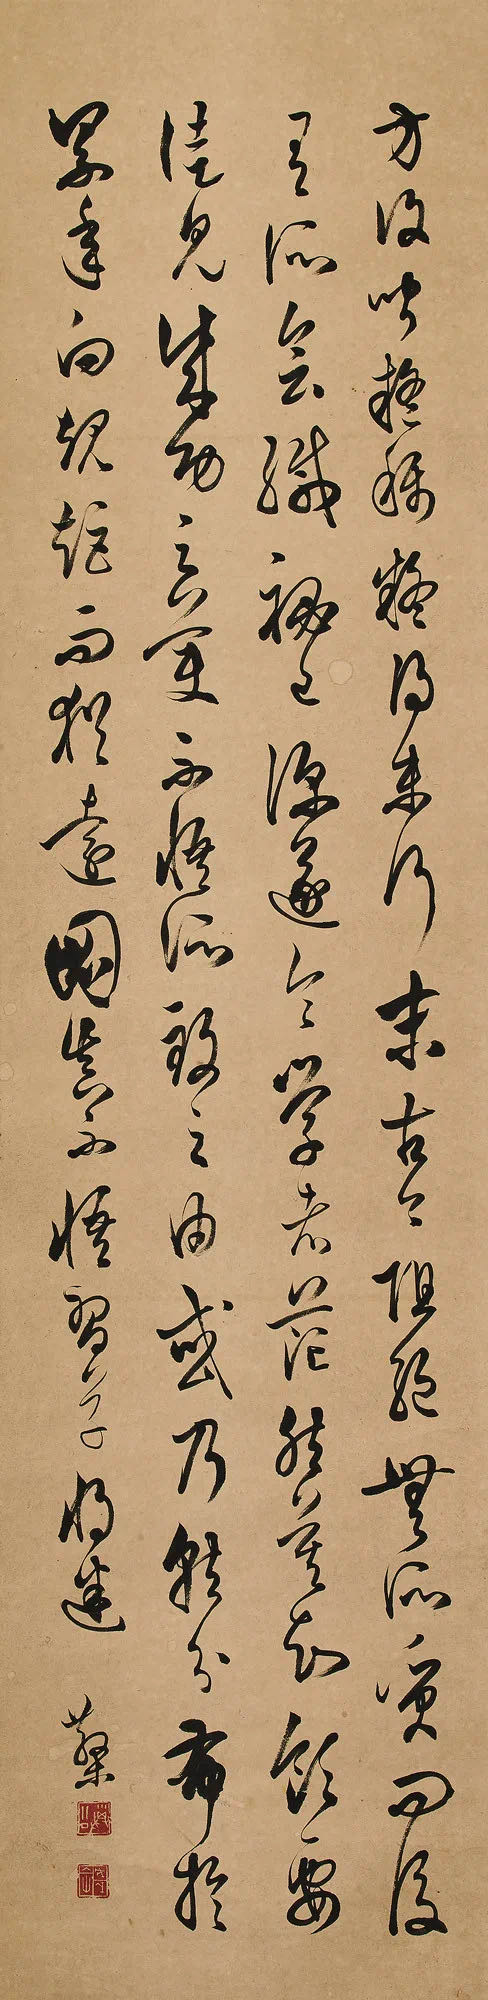 方復聞疑稱疑得末行末古今阻絕無所質問設
有所會緘秘已深遂令學者茫然莫知領要
徒見成功之美不悟所致之由或乃就分布於
累年向規矩而猶遠圖真不悟習草將迷